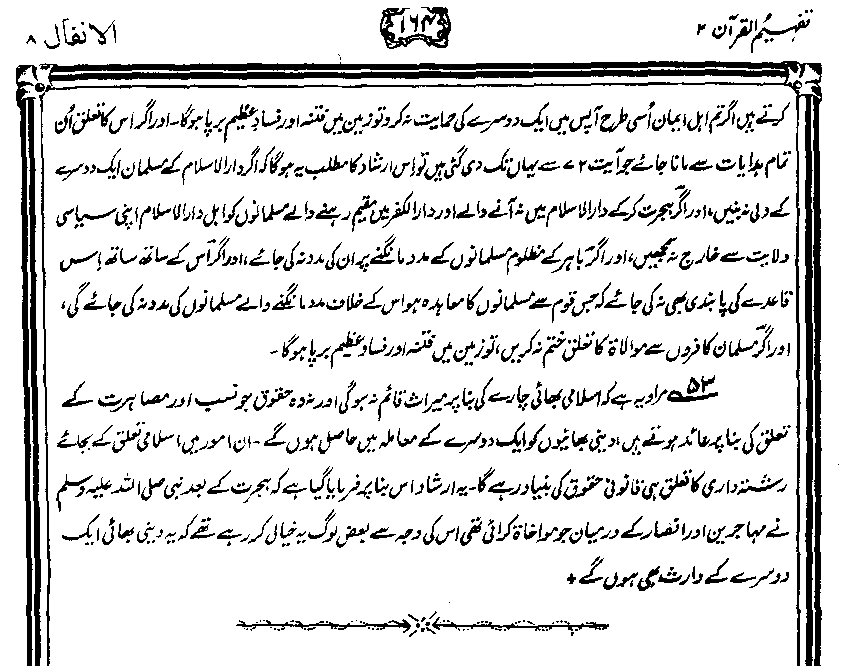 تفہیم القرآن ۲
۱۶۴
الانفال ۸
کرتے ہیں اگر تم اہل ایمان اُسی طرح آپس میں ایک دوسرے کی حمایت نہ کرو تو زمین میں فتنہ اور فسادِ عظیم برپا ہوگا۔ اور اگر اس کا تعلق اُن
تمام ہدایات سے مانا جائے جو آیت ۷۲ سے یہاں تک دی گئی ہیں تو اِس ارشاد کا مطلب یہ ہوگا کہ اگر دارالاسلام کے مسلمان ایک دوسرے
کے ولی نہ بنیں، اور اگر ہجرت کر کے دارالاسلام میں نہ آنے والے اور دارالکفر میں مقیم رہنے والے مسلمانوں کو اہل دارالاسلام اپنی سیاسی
ولایت سے خارج نہ سمجھیں، اور اگر باہر کے مظلوم مسلمانوں کے مدد مانگنے پر ان کی مدد نہ کی جائے، اور اگر اُس کے ساتھ ساتھ اِس
قاعدے کی پابندی بھی نہ کی جائے کہ جس قوم سے مسلمانوں کا معاہدہ ہو اس کے خلاف مدد مانگنے والے مسلمانوں کی مدد نہ کی جائے گی،
اور اگر مسلمان کافروں سے موالاۃ کا تعلق ختم نہ کریں، تو زمین میں فتنہ اور فسادِ عظیم برپا ہوگا۔
۵۳ مراد یہ ہے کہ اسلامی بھائی چارے کی بنا پر میراث قائم نہ ہوگی اور نہ وہ حقوق جو نسب اور مصاہرت کے
تعلق کی بنا پر عائد ہوتے ہیں، دینی بھائیوں کو ایک دوسرے کے معاملہ میں حاصل ہوں گے۔ ان امور میں اسلامی تعلق کے بجائے
رشتہ داری کا تعلق ہی قانونی حقوق کی بنیاد رہے گا۔ یہ ارشاد اس بنا پر فرمایا گیا ہے کہ ہجرت کے بعد نبی صلی اللہ علیہ وسلم
نے مہاجرین اور انصار کے درمیان جو مواخاۃ کرائی تھی اس کی وجہ سے بعض لوگ یہ خیال کر رہے تھے کہ یہ دینی بھائی ایک
دوسرے کے وارث بھی ہوں گے ✦